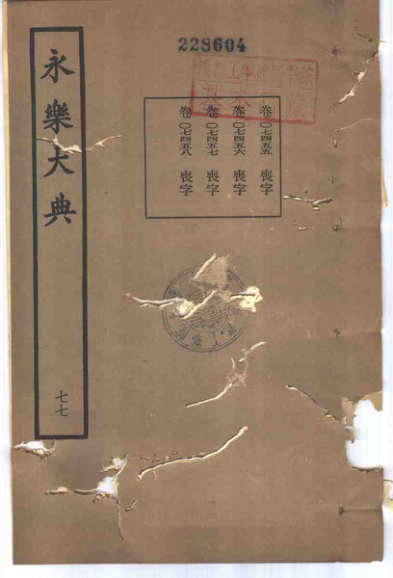 228604
永樂大典
七七
卷〇七四五五 喪字
卷〇七四五六 喪字
卷〇七四五七 喪字
卷〇七四五八 喪字